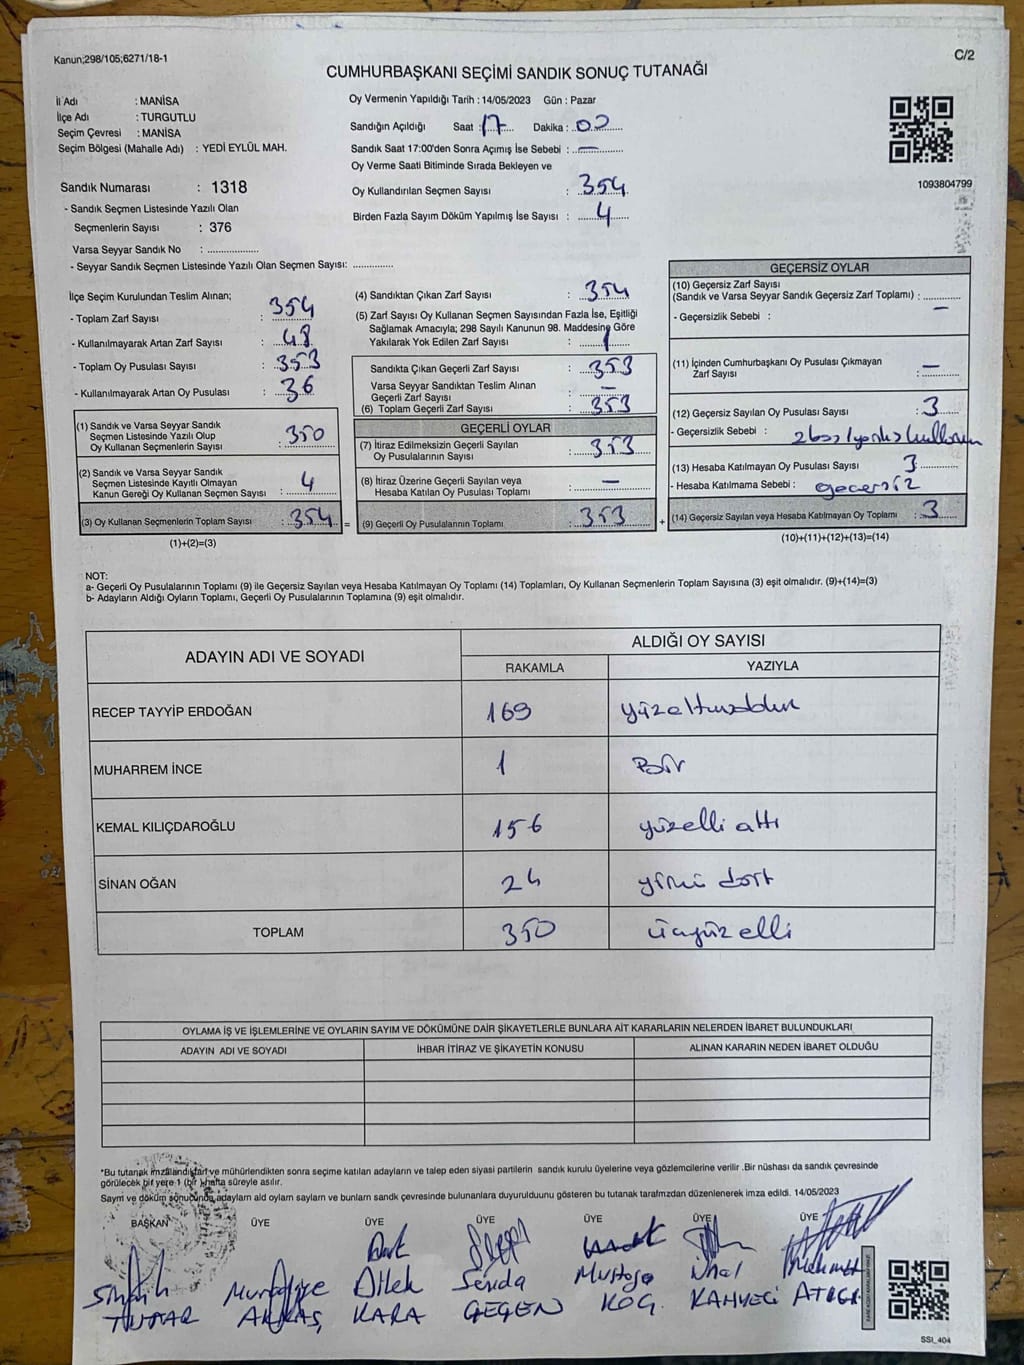 Kanun;298/105;6271/18-1
C/2
CUMHURBAŞKANI SEÇİMİ SANDIK SONUÇ TUTANAĞI
İl Adı : MANİSA
İlçe Adı : TURGUTLU
Seçim Çevresi : MANİSA
Seçim Bölgesi (Mahalle Adı) : YEDİ EYLÜL MAH.
Sandık Numarası : 1318
- Sandık Seçmen Listesinde Yazılı Olan
Seçmenlerin Sayısı : 376
Varsa Seyyar Sandık No : ...................
- Seyyar Sandık Seçmen Listesinde Yazılı Olan Seçmen Sayısı: ..............
Oy Vermenin Yapıldığı Tarih : 14/05/2023 Gün : Pazar
Sandığın Açıldığı Saat : 17 Dakika : 00
Sandık Saat 17:00'den Sonra Açımış İse Sebebi : —
Oy Verme Saati Bitiminde Sırada Bekleyen ve
Oy Kullandırılan Seçmen Sayısı : 354
Birden Fazla Sayım Döküm Yapılmış İse Sayısı : 4
1093804799
İlçe Seçim Kurulundan Teslim Alınan;
- Toplam Zarf Sayısı : 354
- Kullanılmayarak Artan Zarf Sayısı : 48
- Toplam Oy Pusulası Sayısı : 353
- Kullanılmayarak Artan Oy Pusulası : 36
(1) Sandık ve Varsa Seyyar Sandık
Seçmen Listesinde Yazılı Olup
Oy Kullanan Seçmenlerin Sayısı : 350
(2) Sandık ve Varsa Seyyar Sandık
Seçmen Listesinde Kayıtlı Olmayan
Kanun Gereği Oy Kullanan Seçmen Sayısı : 4
(3) Oy Kullanan Seçmenlerin Toplam Sayısı : 354 =
(1)+(2)=(3)
(4) Sandıktan Çıkan Zarf Sayısı : 354
(5) Zarf Sayısı Oy Kullanan Seçmen Sayısından Fazla İse, Eşitliği
Sağlamak Amacıyla; 298 Sayılı Kanunun 98. Maddesine Göre
Yakılarak Yok Edilen Zarf Sayısı : 1
Sandıkta Çıkan Geçerli Zarf Sayısı : 353
Varsa Seyyar Sandıktan Teslim Alınan
Geçerli Zarf Sayısı : —
(6) Toplam Geçerli Zarf Sayısı : 353
GEÇERLİ OYLAR
(7) İtiraz Edilmeksizin Geçerli Sayılan
Oy Pusulalarının Sayısı : 353
(8) İtiraz Üzerine Geçerli Sayılan veya
Hesaba Katılan Oy Pusulası Toplamı : —
(9) Geçerli Oy Pusulalarının Toplamı : 353 +
GEÇERSİZ OYLAR
(10) Geçersiz Zarf Sayısı
(Sandık ve Varsa Seyyar Sandık Geçersiz Zarf Toplamı) : ............
- Geçersizlik Sebebi : —
(11) İçinden Cumhurbaşkanı Oy Pusulası Çıkmayan
Zarf Sayısı : —
(12) Geçersiz Sayılan Oy Pusulası Sayısı : 3
- Geçersizlik Sebebi :
(13) Hesaba Katılmayan Oy Pusulası Sayısı 3
- Hesaba Katılmama Sebebi : geçersiz
(14) Geçersiz Sayılan veya Hesaba Katılmayan Oy Toplamı : 3
(10)+(11)+(12)+(13)=(14)
NOT:
a- Geçerli Oy Pusulalarının Toplamı (9) ile Geçersiz Sayılan veya Hesaba Katılmayan Oy Toplamı (14) Toplamları, Oy Kullanan Seçmenlerin Toplam Sayısına (3) eşit olmalıdır. (9)+(14)=(3)
b- Adayların Aldığı Oyların Toplamı, Geçerli Oy Pusulalarının Toplamına (9) eşit olmalıdır.
ADAYIN ADI VE SOYADI
ALDIĞI OY SAYISI
RAKAMLA YAZIYLA
RECEP TAYYİP ERDOĞAN 169
MUHARREM İNCE 1 Bir
KEMAL KILIÇDAROĞLU 156 yüzelli altı
SİNAN OĞAN 24 yirmi dört
TOPLAM 350 üçyüz elli
OYLAMA İŞ VE İŞLEMLERİNE VE OYLARIN SAYIM VE DÖKÜMÜNE DAİR ŞİKAYETLERLE BUNLARA AİT KARARLARIN NELERDEN İBARET BULUNDUKLARI
ADAYIN ADI VE SOYADI İHBAR İTİRAZ VE ŞİKAYETİN KONUSU ALINAN KARARIN NEDEN İBARET OLDUĞU
*Bu tutanak imzalandıktan ve mühürlendikten sonra seçime katılan adayların ve talep eden siyasi partilerin sandık kurulu üyelerine veya gözlemcilerine verilir .Bir nüshası da sandık çevresinde
görülecek bir yere 1 (bir ) hafta süreyle asılır.
Sayım ve döküm sonucunda adayların ald oyların sayların bunların sandk çevresinde bulunanlara duyurulduunu gösteren bu tutanak tarafmzdan düzenlenerek imza edildi. 14/05/2023
BAŞKAN ÜYE ÜYE ÜYE ÜYE ÜYE ÜYE
Dilek Senda Mustafa Nihal Mehmet
KARA GEÇEN KOÇ KAHVECİ
SSI_404